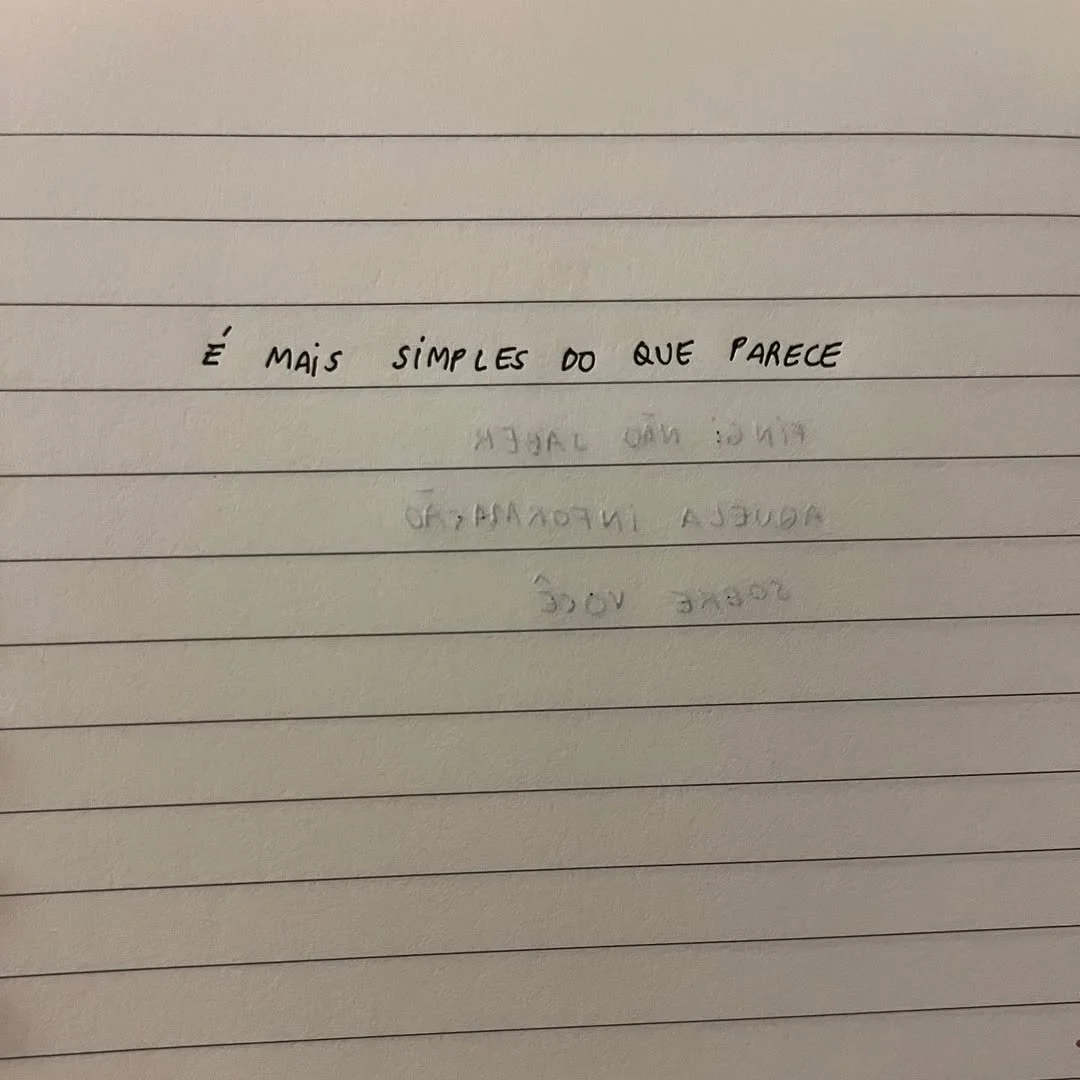 É MAIS SIMPLES DO QUE PARECE
FINGI NÃO SABER
AQUELA INFORMAÇÃO
SOBRE VOCÊ